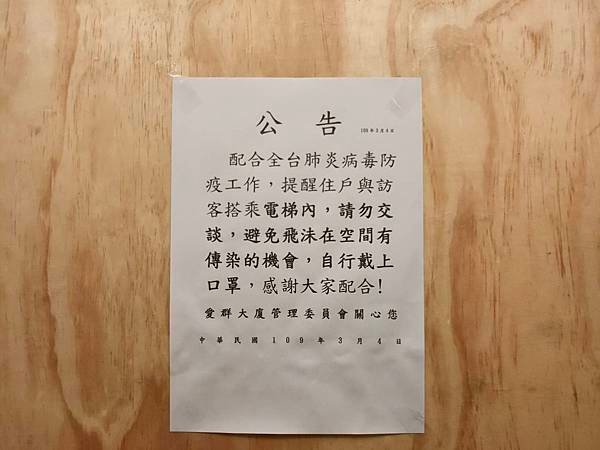 公告 109年3月4日
配合全台肺炎病毒防
疫工作，提醒住戶與訪
客搭乘電梯內，請勿交
談，避免飛沫在空間有
傳染的機會，自行戴上
口罩，感謝大家配合！
愛群大廈管理委員會關心您
中華民國109年3月4日